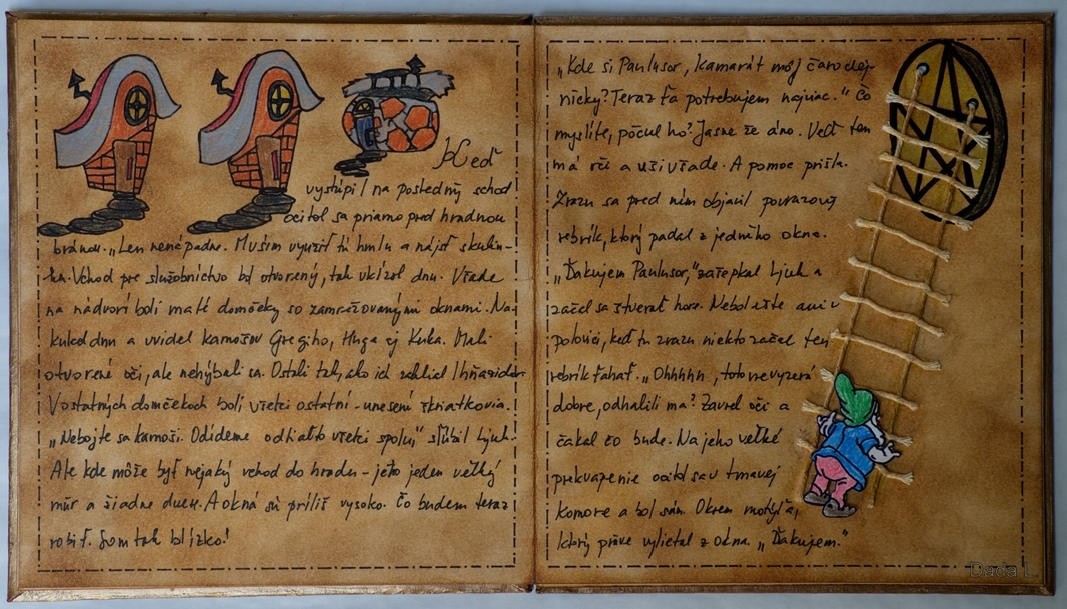 Keď
vystúpil na posledný schod
ocitol sa priamo pred hradnou
bránou. „Len nenápadne. Musím využiť tú hmlu a nájsť skulin-
ku. Vchod pre služobníctvo bol otvorený, tak vkĺzol dnu. Všade
na nádvorí boli malé domčeky so zamrežovanými oknami. Na-
kukol dnu a uvidel kamošov Gregiho, Huga aj Kuka. Mali
otvorené oči, ale nehýbali sa. Ostali tak, ako ich zaklial
V ostatných domčekoch boli všetci ostatní - unesení škriatkovia.
„Nebojte sa kamoši. Odídeme odtiaľto všetci spolu" sľúbil Ljuh.
Ale kde môže byť nejaký vchod do hradu - je to jeden veľký
múr a žiadne dvere. A okná sú príliš vysoko. Čo budem teraz
robiť. Som tak blízko!
„Kde si Paulusor, kamarát môj čarodej-
nícky? Teraz ťa potrebujem najviac." Čo
myslíte, počul ho? Jasne že áno. Veď ten
má oči a uši všade. A pomoc prišla.
Zrazu sa pred ním objavil povrazový
rebrík, ktorý padal z jedného okna.
„Ďakujem Paulusor," zašepkal Ljuh a
začal sa štverať hore. Nebol ešte ani v
polovici, keď tu zrazu niekto začal ten
rebrík ťahať. „Ohhhhh, toto nevyzerá
dobre, odhalili ma? Zavrel oči a
čakal čo bude. Na jeho veľké
prekvapenie ocitol sa v tmavej
komore a bol sám. Okrem motýľa,
ktorý práve vylietal z okna. „Ďakujem."
Dada L